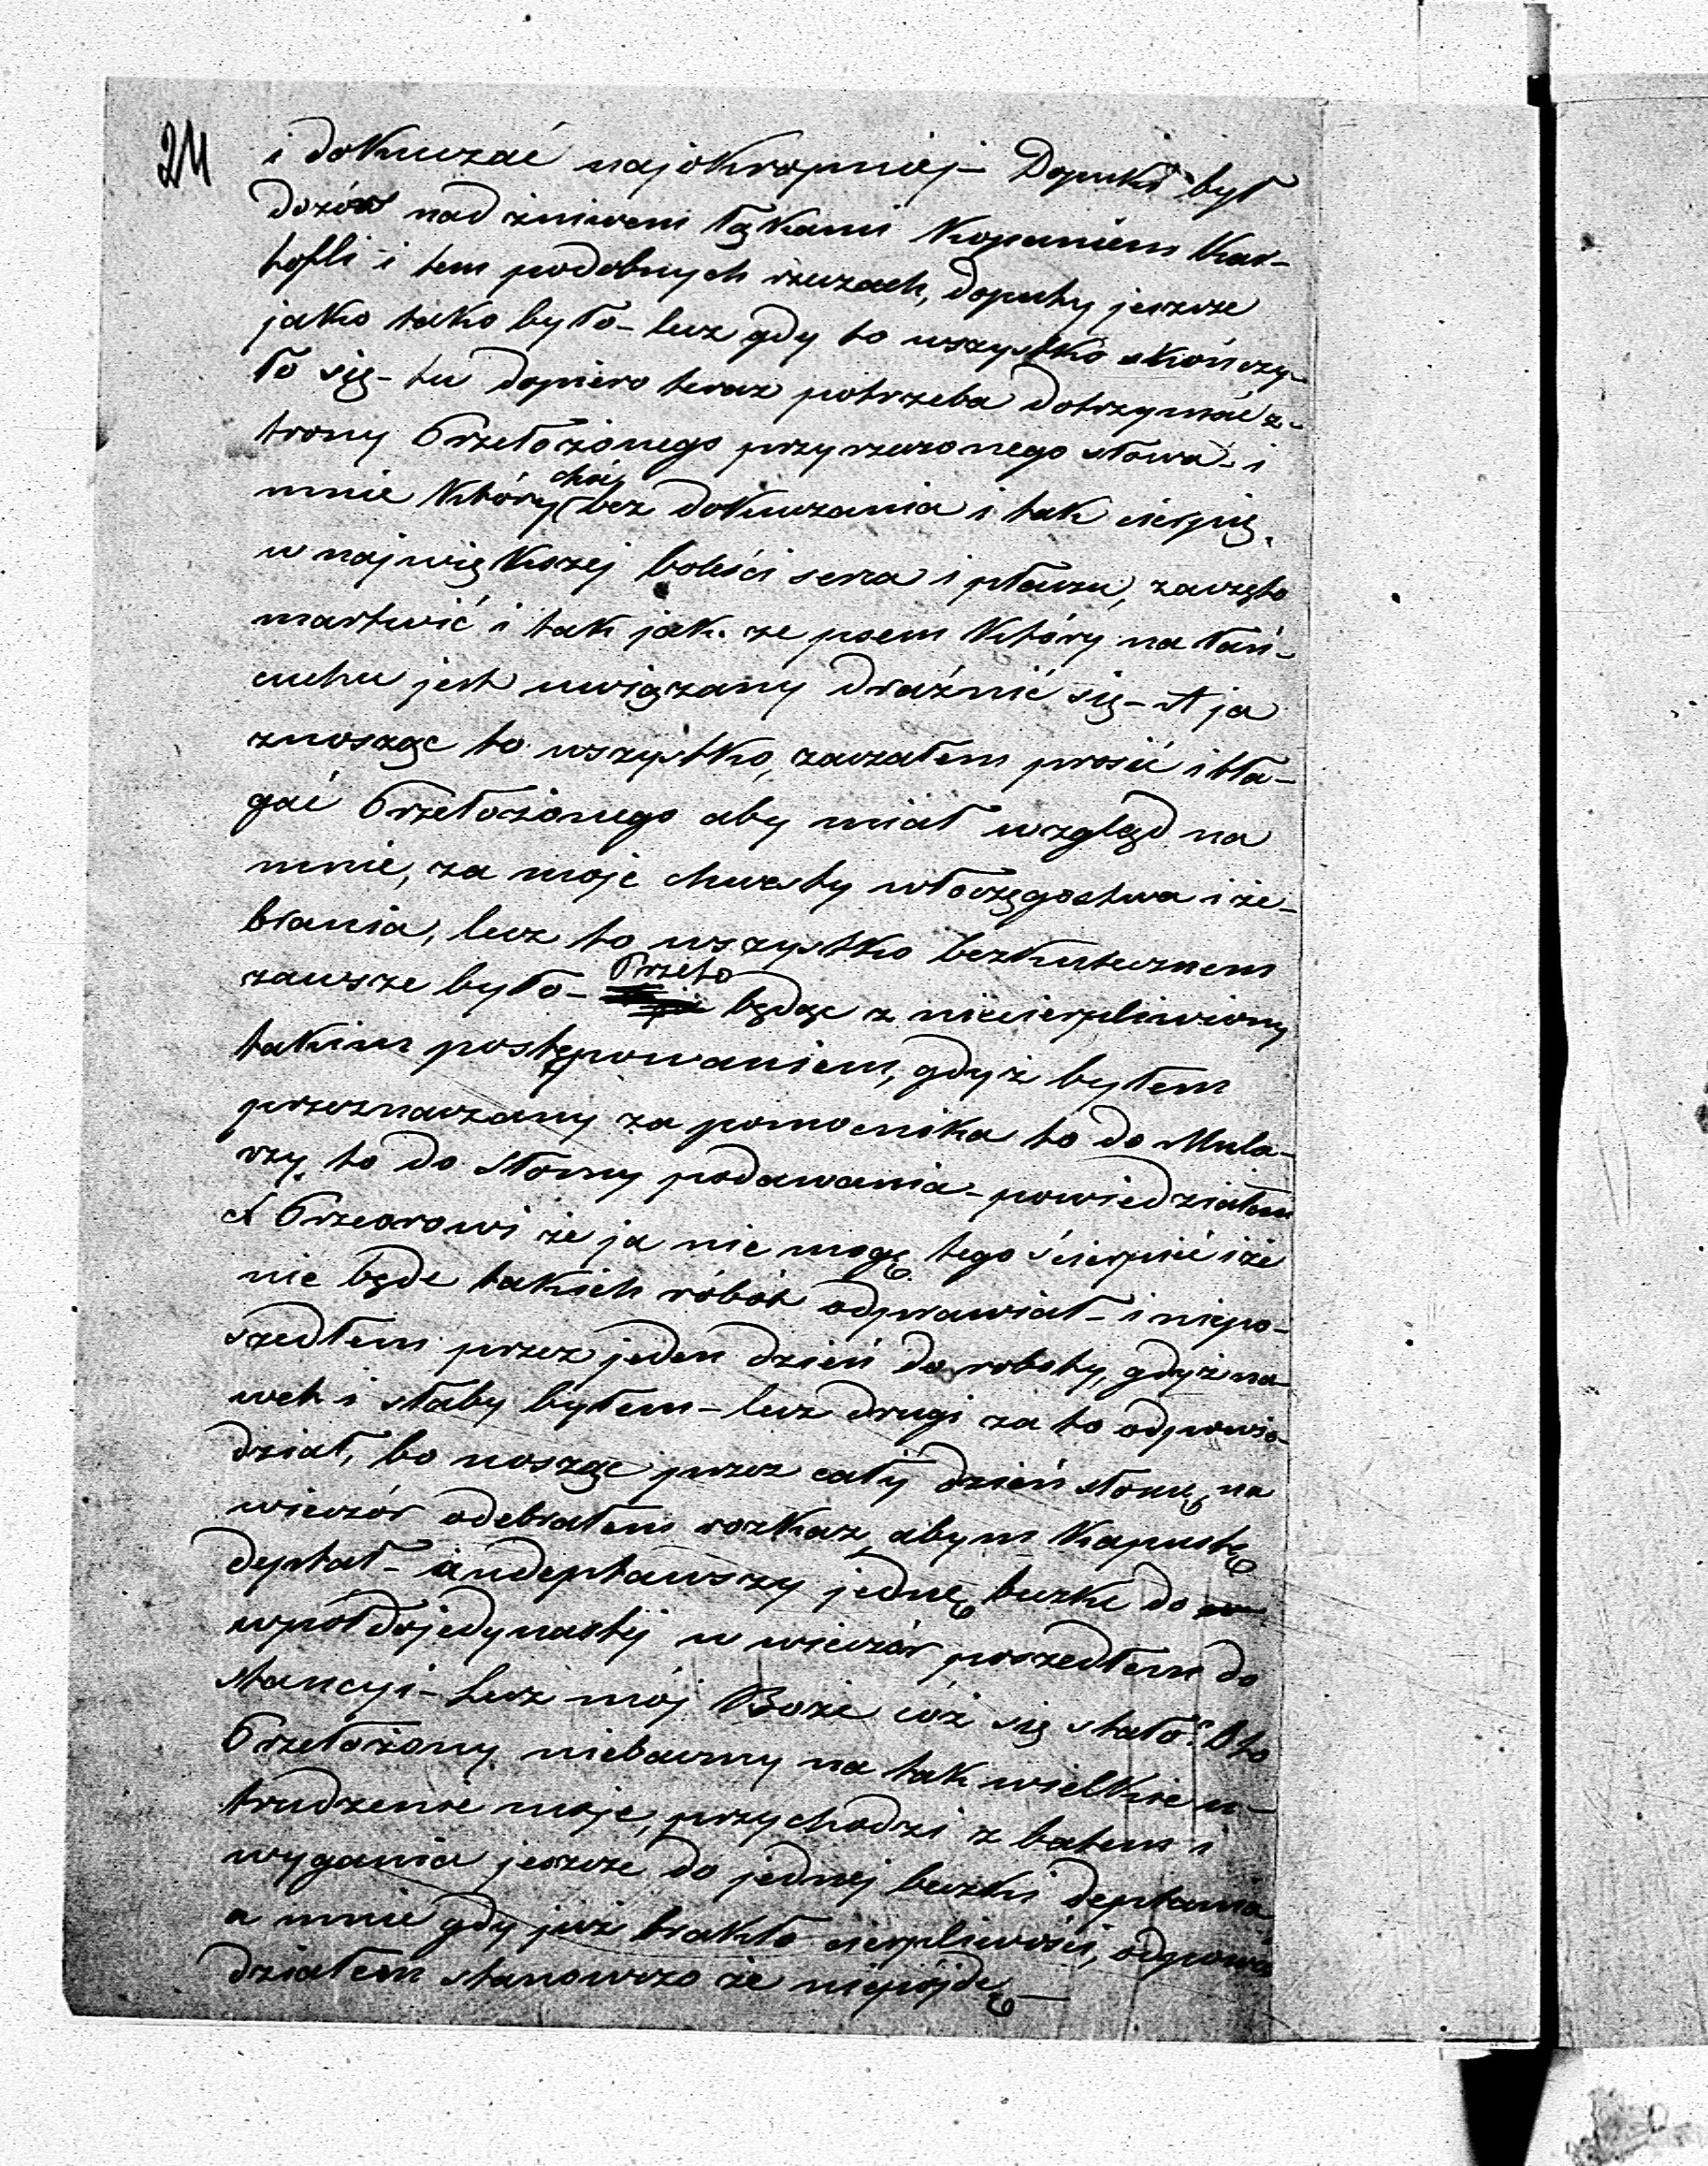 24
i dokuczać najokropniej – Dopuki był
dozór nad żniwem łąkami kopaniem kar-
tofli i tem podobnych rzeczach, dopuky jeszcze
jako tako było – lecz gdy to wszystko skończy-
ło się – tu dopiero teraz potrzeba dotrzymać z-
trony Przełożonego przyrzeczonego słowa – i
choć
mnie który bez dokuczania i tak cierpię
w największej boleści serca i płaczu, zaczęto
martwić i tak jak ze psem który na łań-
cuchu jest uwiązany draźnić się – A ja
znosząc to wszystko, zaczałem prosić i bła-
gać Przełożonego aby miał wzgląd na
mnie, za moje chwesty włoczęgostwa i że-
brania, lecz to wszystko bezkutecznem
Przeto
zawsze było – będąc z niecierpliwiony
takim postępowaniem, gdyż byłem
przeznaczany za pomocnika to do Mula-
rzy to do słomy podawania – powiedziałem
X Przeorowi że ja nie mogę tego ścierpić i że
nie będe takich robót odprawiał – i niepo-
szedłem przez jeden dzień do roboty, gdyż na-
wet i słaby byłem – lecz drugi za to odpowie-
dział, bo nosząc przez cały dzień słomę, na
wieczór odebrałem rozkaz, abym kapustę
deptał – a udeptawszy jednę beczkę do
wpół do jedynastej w wieczór poszedłem do
stancyi – lecz mój Boże cóż się stało? Oto
Przełożony niebaczny na tak wielkie u-
trudzenie moje, przychodzi z batem i
wygania jeszcze do jednej beczki deptania
a mnie gdy już brakło cierpliwości, odpowie-
działem stanowczo że niepójdę –